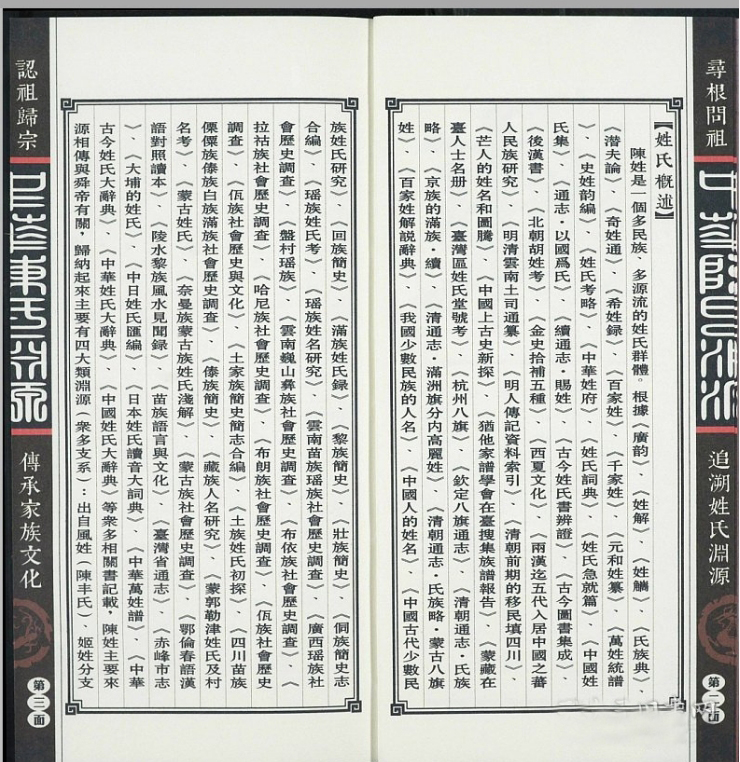 尋根問祖
中華陳氏淵流
追溯姓氏淵源
第二面
【姓氏概述】
陳姓是一個多民族、多源流的姓氏群體。根據《廣韵》、《姓解》、《姓觿》、《氏族典》、
《潜夫論》、《奇姓通》、《希姓録》、《百家姓》、《千家姓》、《元和姓纂》、《萬姓統譜
》、《史姓韵編》、《姓氏考略》、《中華姓府》、《姓氏詞典》、《姓氏急就篇》、《中國姓
氏集》、《通志·以國爲氏》、《續通志·賜姓》、《古今姓氏書辨證》、《古今圖書集成》、
《後漢書》、《北朝胡姓考》、《金史拾補五種》、《西夏文化》、《兩漢迄五代入居中國之蕃
人民族研究》、《明清雲南土司通纂》、《明人傳記資料索引》、《清朝前期的移民填四川》、
《芒人的姓名和圖騰》、《中國上古史新探》、《猶他家譜學會在臺搜集族譜報告》、《蒙藏在
臺人士名册》、《臺灣區姓氏堂號考》、《杭州八旗》、《欽定八旗通志》、《清朝通志·氏族
略》、《京族的滿族·續》、《清通志·滿洲旗分内高麗姓》、《清朝通志·氏族略·蒙古八旗
姓》、《百家姓解説辭典》、《我國少數民族的人名》、《中國人的姓名》、《中國古代少數民
族姓氏研究》、《回族簡史》、《滿族姓氏録》、《黎族簡史》、《壯族簡史》、《侗族簡史志
合編》、《瑶族姓氏考》、《瑶族姓名研究》、《雲南苗族瑶族社會歷史調查》、《廣西瑶族社
會歷史調查》、《盤村瑶族》、《雲南巍山彝族社會歷史調查》、《布依族社會歷史調查》、《
拉祜族社會歷史調查》、《哈尼族社會歷史調查》、《布朗族社會歷史調查》、《佤族社會歷史
調查》、《佤族社會歷史與文化》、《土家族簡史簡志合編》、《土族姓氏初探》、《四川苗族
傈僳族傣族白族滿族社會歷史調查》、《傣族簡史》、《藏族人名研究》、《蒙郭勒津姓氏及村
名考》、《蒙古姓氏》、《奈曼旗蒙古族姓氏淺解》、《蒙古族社會歷史調查》、《鄂倫春語漢
語對照讀本》、《陵水黎族風水見聞録》、《苗族語言與文化》、《臺灣省通志》、《赤峰市志
》、《大埔的姓氏》、《中日姓氏匯編》、《日本姓氏讀音大詞典》、《中華萬姓譜》、《中華
古今姓氏大辭典》、《中華姓氏大辭典》、《中國姓氏大辭典》等衆多相關書記載，陳姓主要來
源相傳與舜帝有關，歸納起來主要有四大類淵源（衆多支系）：出自風姓（陳丰氏）、姬姓分支
認祖歸宗
傳承家族文化
第三面